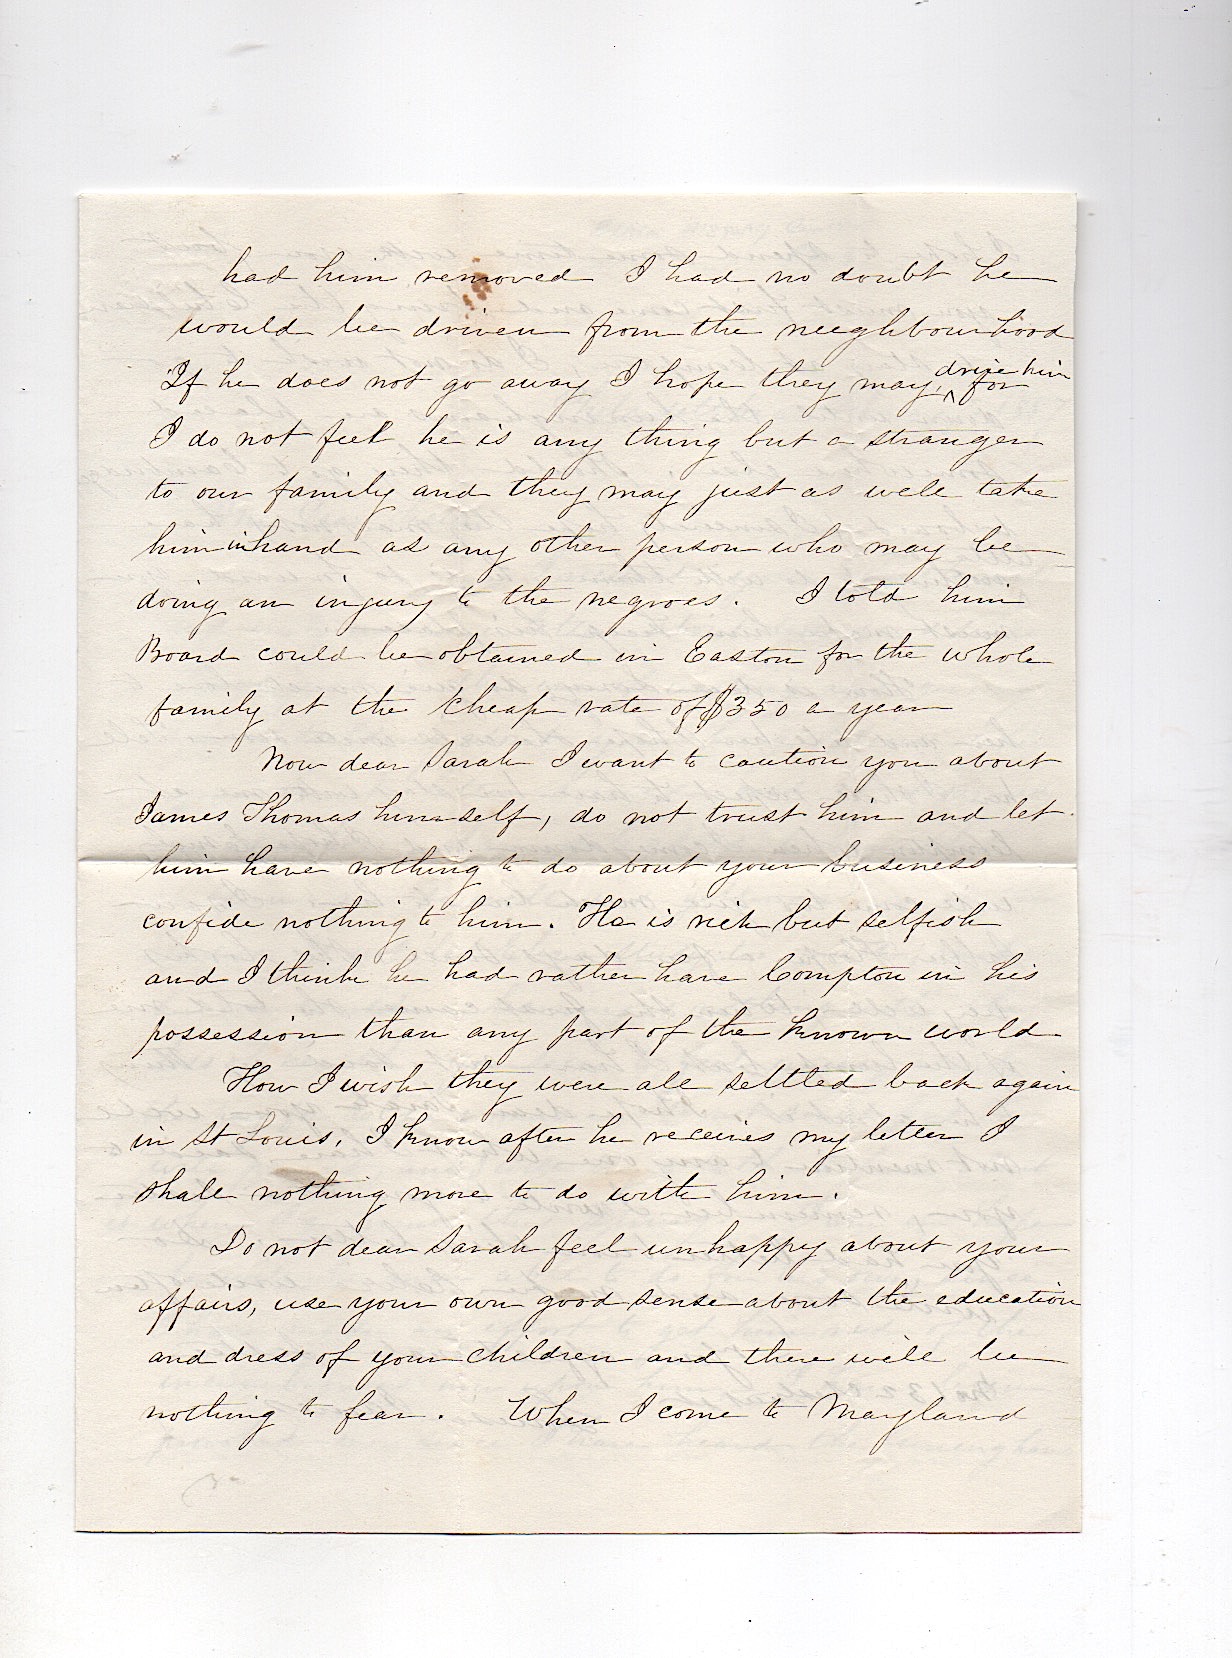 had him removed I had no doubt he
would be driven from the neeghbourhood
If he does not go away I hope they may, drive him for
I do not feel he is any thing but a stranger
to our family and they may just as well take
him in hand as any other person who may be
doing an injury to the negroes. I told him
Board could be obtained in Easton for the whole
family at the cheap rate of $350 a year
Now dear Sarah I want to caution you about
James Thomas himself, do not trust him and let
him have nothing to do about your business
confide nothing to him. He is rich but selfish
and I think he had rather have Compton in his
possession than any part of the known world
How I wish they were all settled back again
in St Louis. I know after he receives my letter I
shall nothing more to do with him.
Do not dear Sarah feel unhappy about your
affairs, use your own good sense about the education
and dress of your children and there will be
nothing to fear. When I come to Maryland